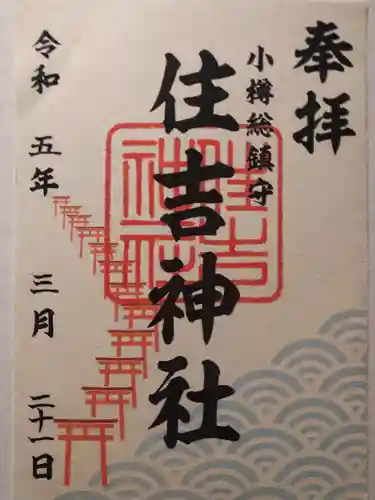 奉拝
小樽総鎮守
住吉神社
令和五年三月二十一日
住吉
神社